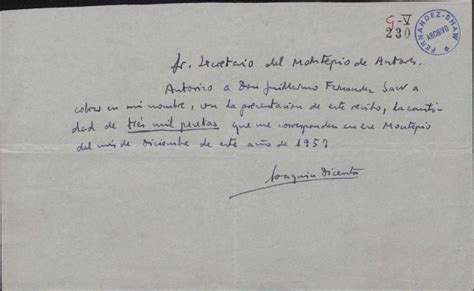 G-V
230
FERNANDEZ-SHAW
ARCHIVO
Sr. Secretario del Montepio de Autores.
Autorizo a Don Guillermo Fernandez Shaw a
cobrar en mi nombre, con la presentacion de este recibo, la canti
dad de tres mil pesetas que me corresponden en ese Montepio
del més de Diciembre de este año de 1957
Joaquin Dicenta